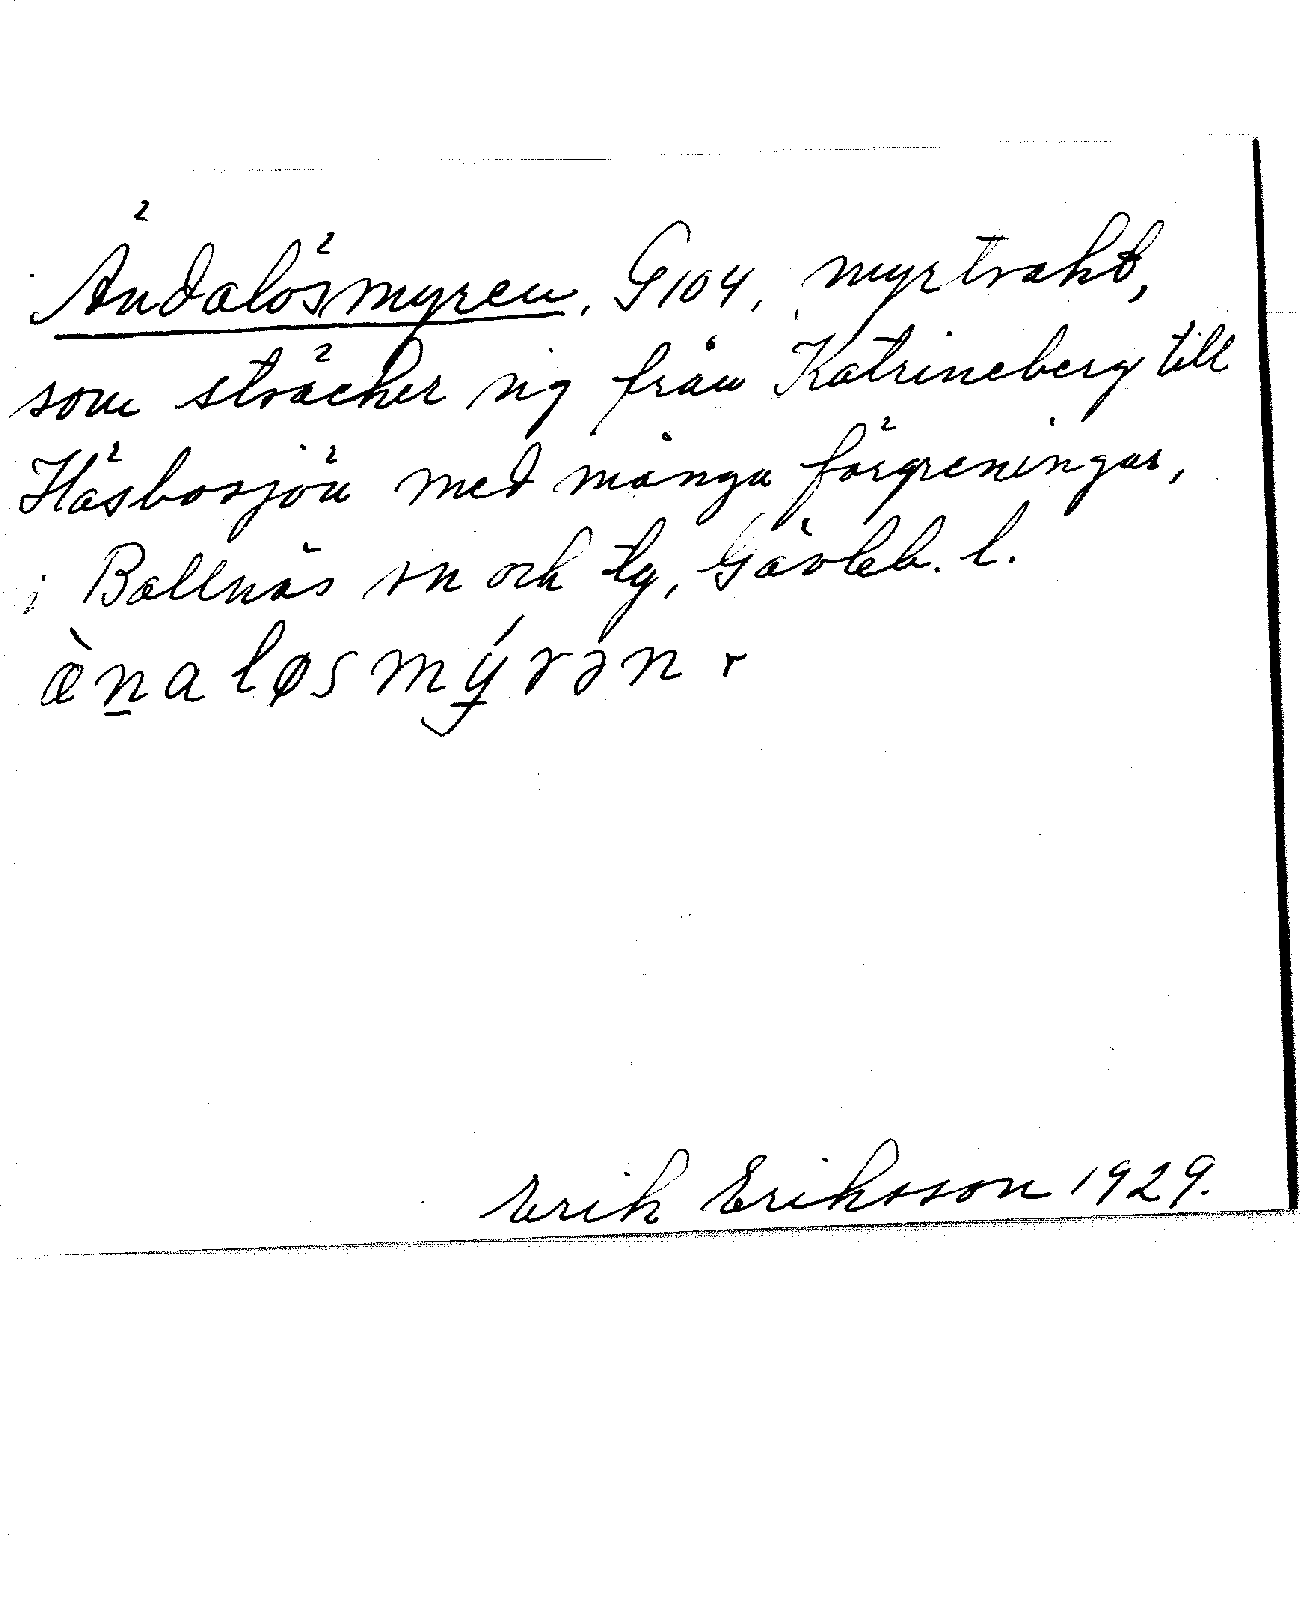 Ändalösmyren, G104, myrtrakt,
som sträcker sig från Katrineberg till
Häsbosjön med många förgreningar,
i Bollnäs sn och tg, Gävleb. l.
æ̀n̲aløsmýrən.
Erik Eriksson 1929.